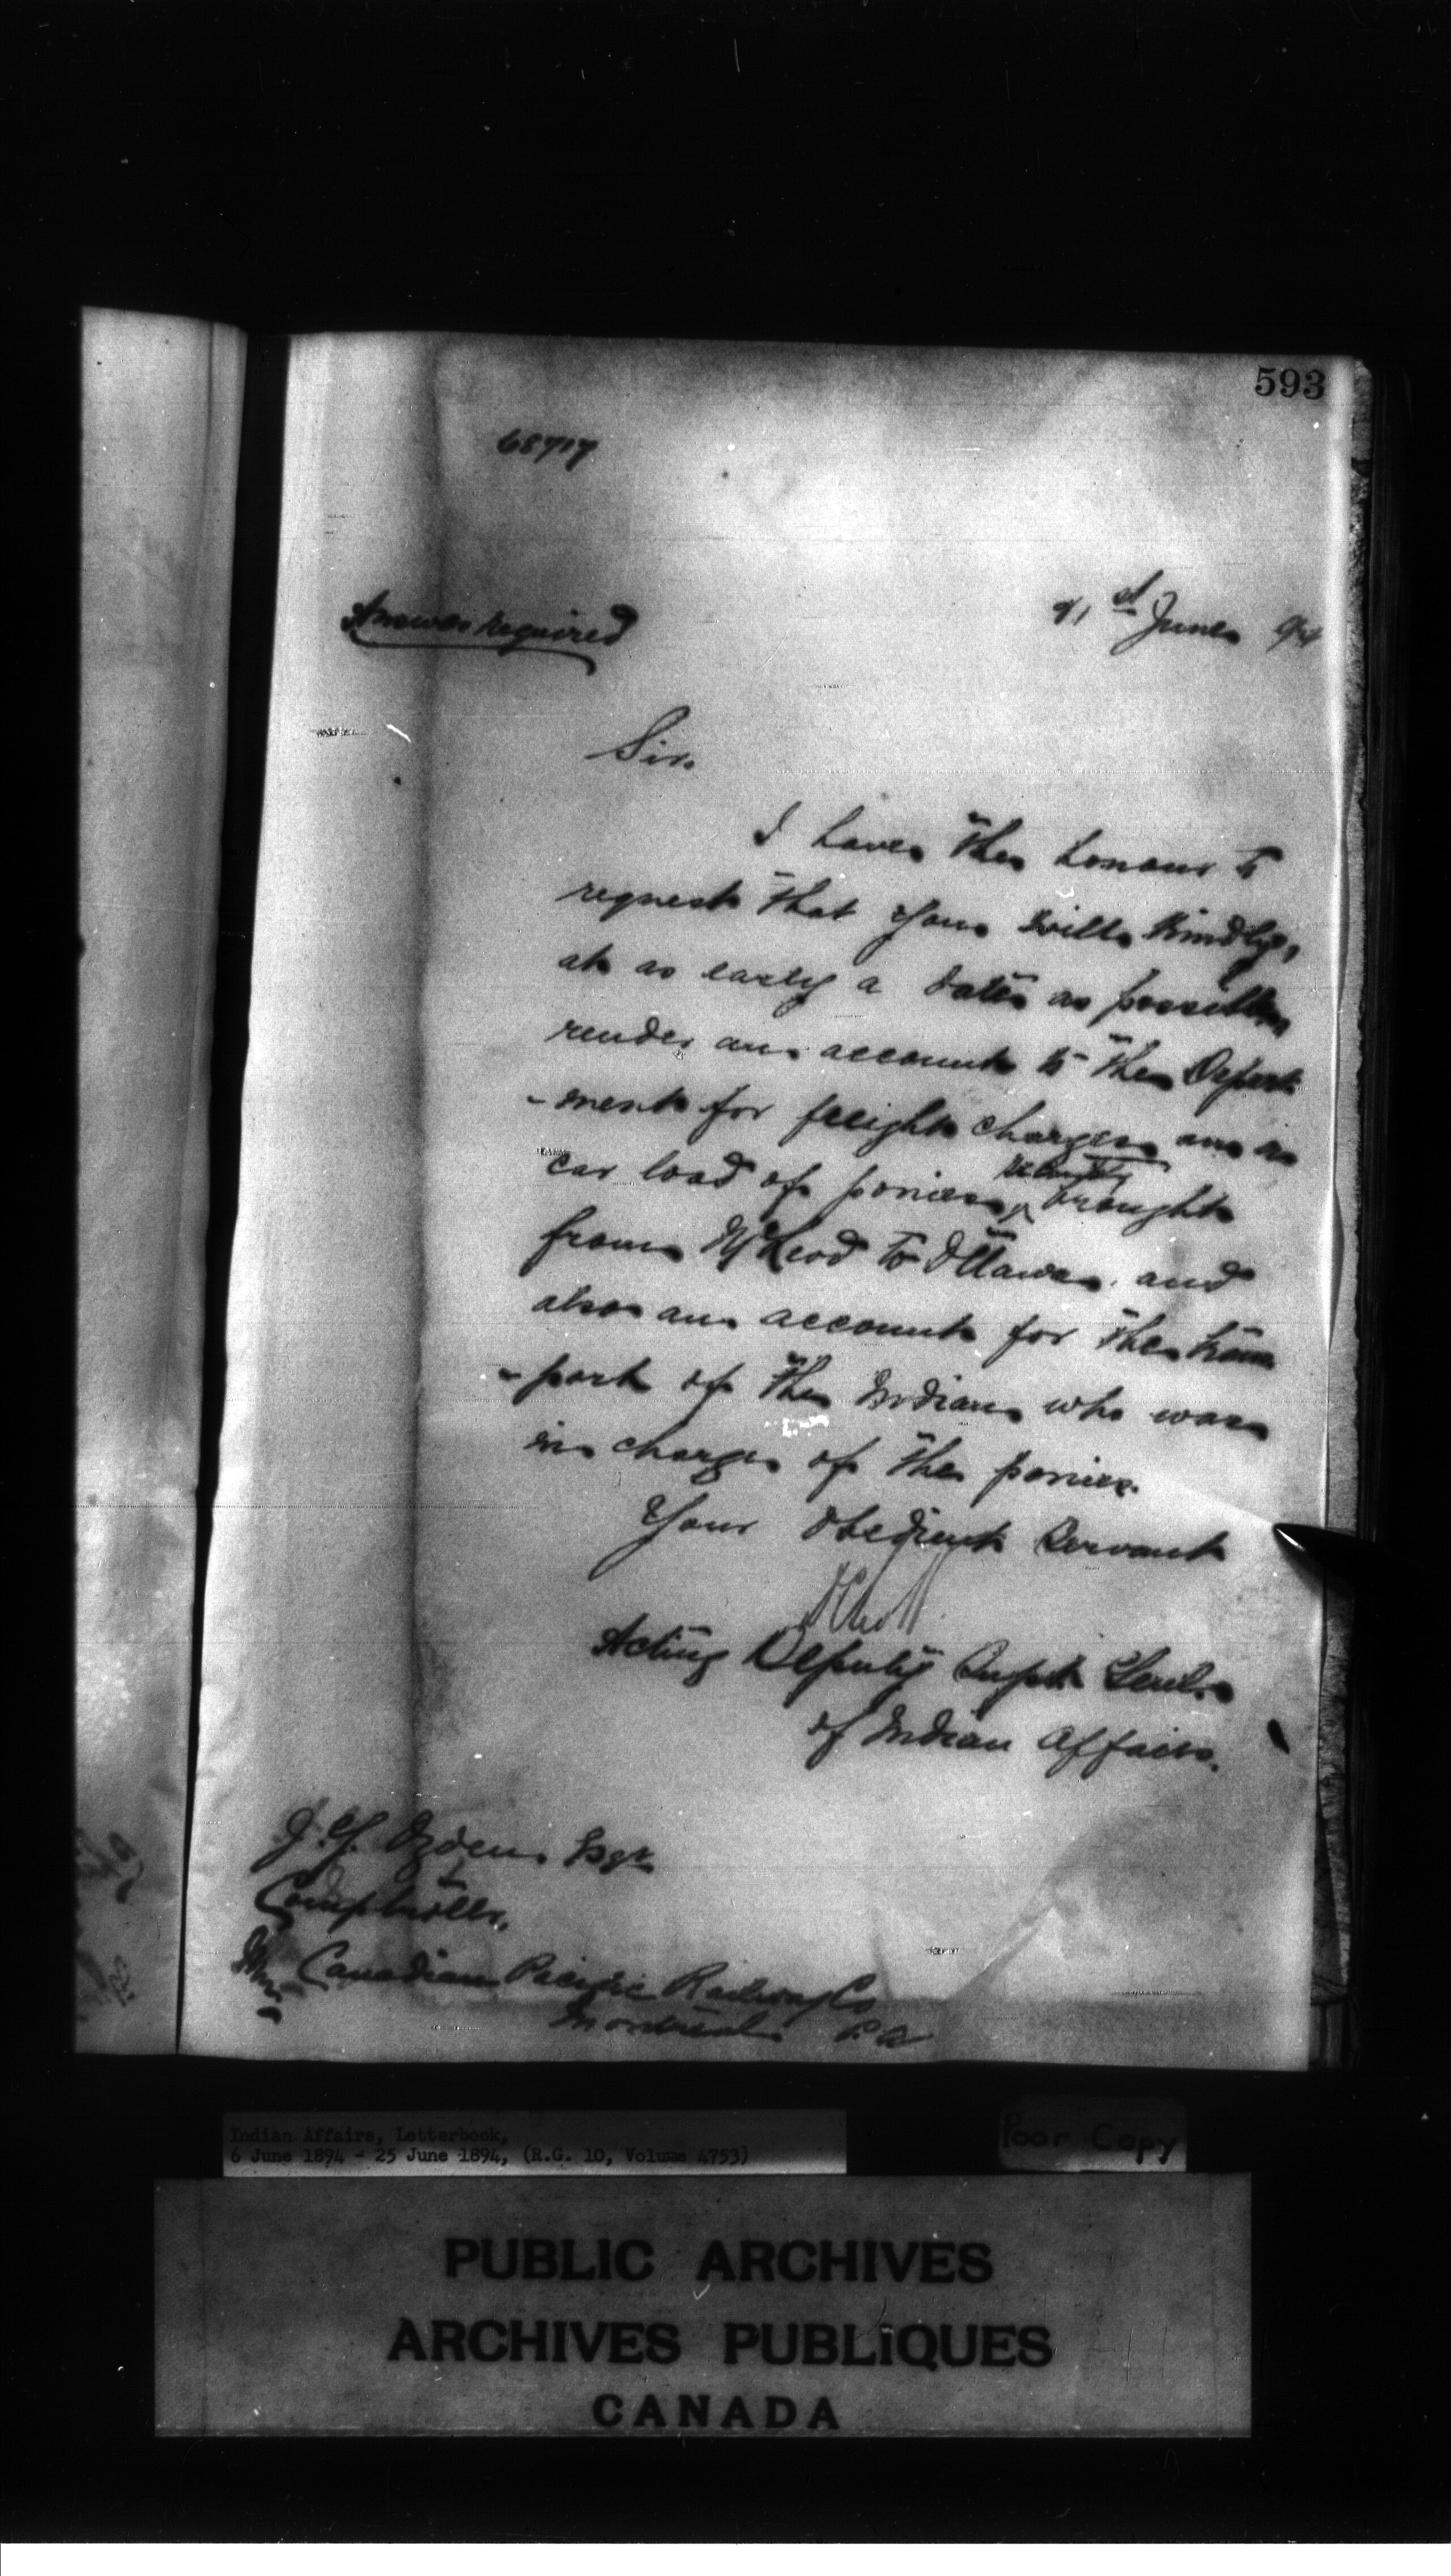 593
68717
Answer required
21st June 94
Sir,
I have the honour to
request that you will kindly,
at as early a date as possible,
render an account to the Depart
-ment for freight charges on a
car load of ponies, recently brought
from McLeod to Ottawa, and
also an account for the trans
-port of the Indian who was
in charge of the ponies.
Your obedient Servant
Acting Deputy Supt. Genl.
of Indian Affairs.
I. G. Ogden, Esqr.
Comptroller,
Canadian Pacific Railway Co
Montreal P.Q.
Indian Affairs, Letterbook,
6 June 1894 - 25 June 1894, (R.G. 10, Volume 4753)
Poor Copy
PUBLIC ARCHIVES
ARCHIVES PUBLIQUES
CANADA